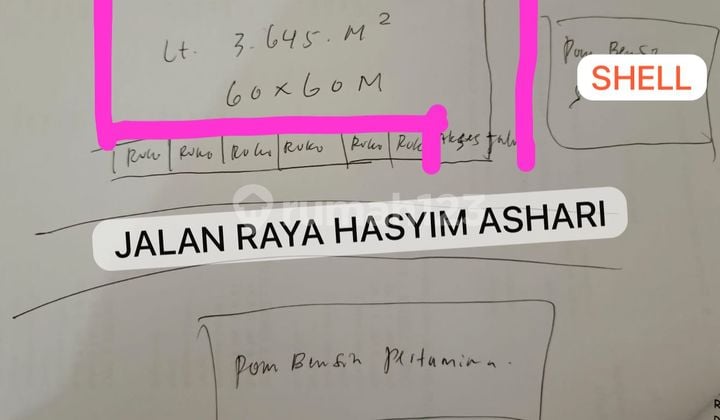 Lt. 3.645.M²
60x60M
Pom Bensin
SHELL
Ruko Ruko Ruko Ruko Ruko Ruko Akses Jalan
rumah123
JALAN RAYA HASYIM ASHARI
Pom Bensin Pertamina.